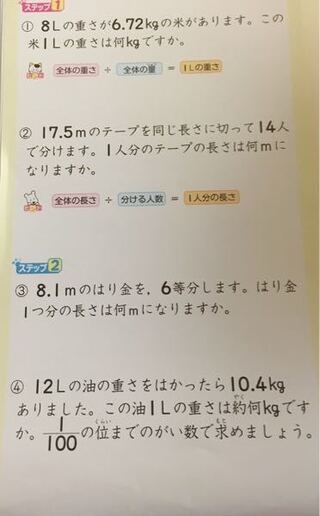 ステップ1
① 8Lの重さが6.72kgの米があります。この
米1Lの重さは何kgですか。
全体の重さ ÷ 全体の量 = 1Lの重さ
② 17.5mのテープを同じ長さに切って14人
で分けます。1人分のテープの長さは何mに
なりますか。
全体の長さ ÷ 分ける人数 = 1人分の長さ
ステップ2
③ 8.1mのはり金を,6等分します。はり金
1つ分の長さは何mになりますか。
④ 12Lの油の重さをはかったら10.4kg
ありました。この油1Lの重さは約何kgです
か。1/100の位までのがい数で求めましょう。